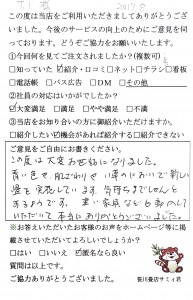 T.I 様
2017.8
この度は当店をご利用いただきましてありがとうござ
いました。今後のサービスの向上のためにご意見を伺
っております。どうぞご協力をお願いいたします。
①今回何をみてご注文されましたか?(複数可)
□知っていた ☑紹介・口コミ □ネット □チラシ □看板
□電話帳 □バス広告 □DM □その他
②社員の対応はいかがでしたか?
☑大変満足 □満足 □やや不満 □不満
③当店をお知り合いの方に御紹介いただけますか。
□紹介したい ☑機会があれば紹介する □紹介できない
ご意見をご自由にお書きください。
この度は大変お世話になりました。
青い色で、肌ざわりや い草のにおいで新しい
畳を実感しています。気持ちまでしゃんと
するようです。重い家具なども
していただいて本当にありがとうございました。
※お答えいただいたお客様のお声をホームページ等に掲
載させていただいてよろしいでしょうか?
□はい □いいえ ☑匿名なら良い
質問は以上です。
ご協力ありがとうございました。
笹川畳店サミィ君